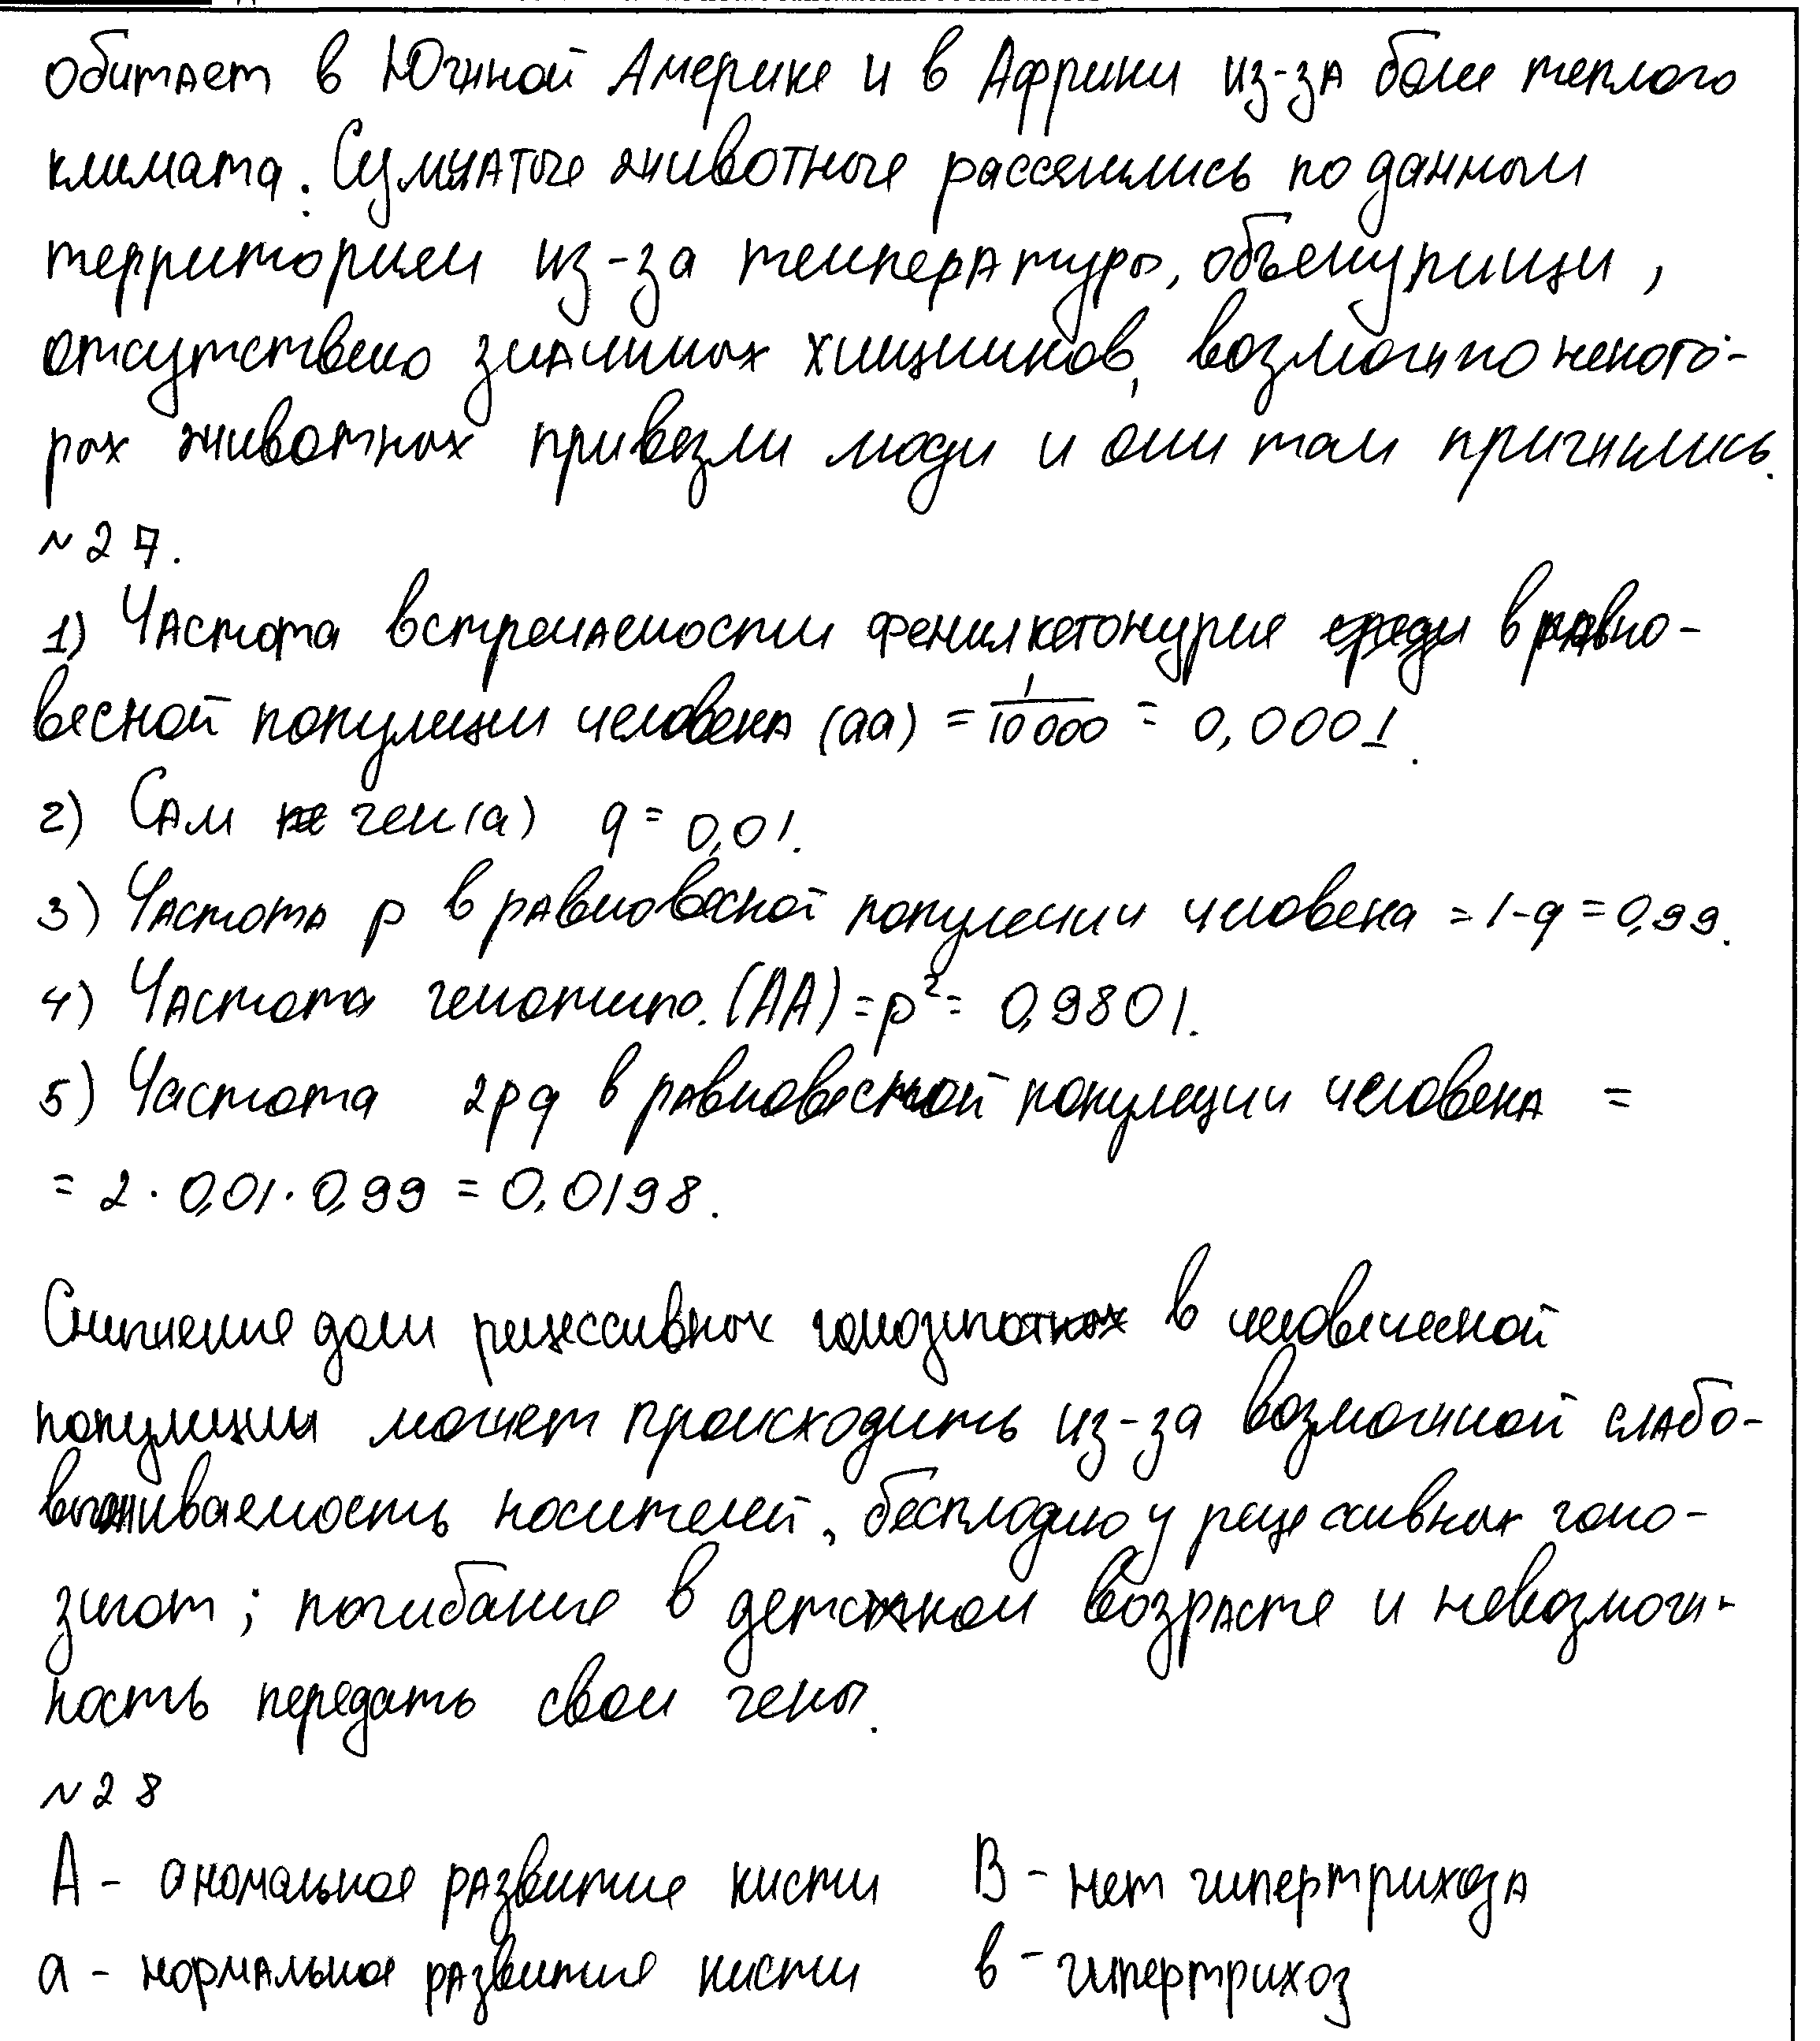 обитает в Южной Америке и в Африки из-за боле теплого
климата. Сумчатые животные расселились по данным
территориям из-за температуры, объему пищи,
отсутствею значимых хищников, возможно некото-
рых животных привезли люди и они там прижились.
№27.
1) Частота встречаемости фенилкетонурие среди в равно-
весной популяции человека (аа) = 1/10000 = 0,0001.
2) Сам не ген (а) q = 0,01.
3) Частота p в равновесной популяции человека = 1-q = 0,99.
4) Частота генотипа. (АА) = p² = 0,9801.
5) Частота 2pq в равновесной популяции человека =
= 2 · 0,01 · 0,99 = 0,0198.
Снижение доли рецессивных гомозиготных в человеческой
популяции может происходить из-за возможной слабо-
выживаемость носителей, бесплодию у рецессивных гомо-
зигот; погибание в детском возрасте и невозмож-
ность передать свои гены.
№28
А - аномальное развитие кисти В - нет гипертрихоза
а - нормальное развитие кисти в - гипертрихоз